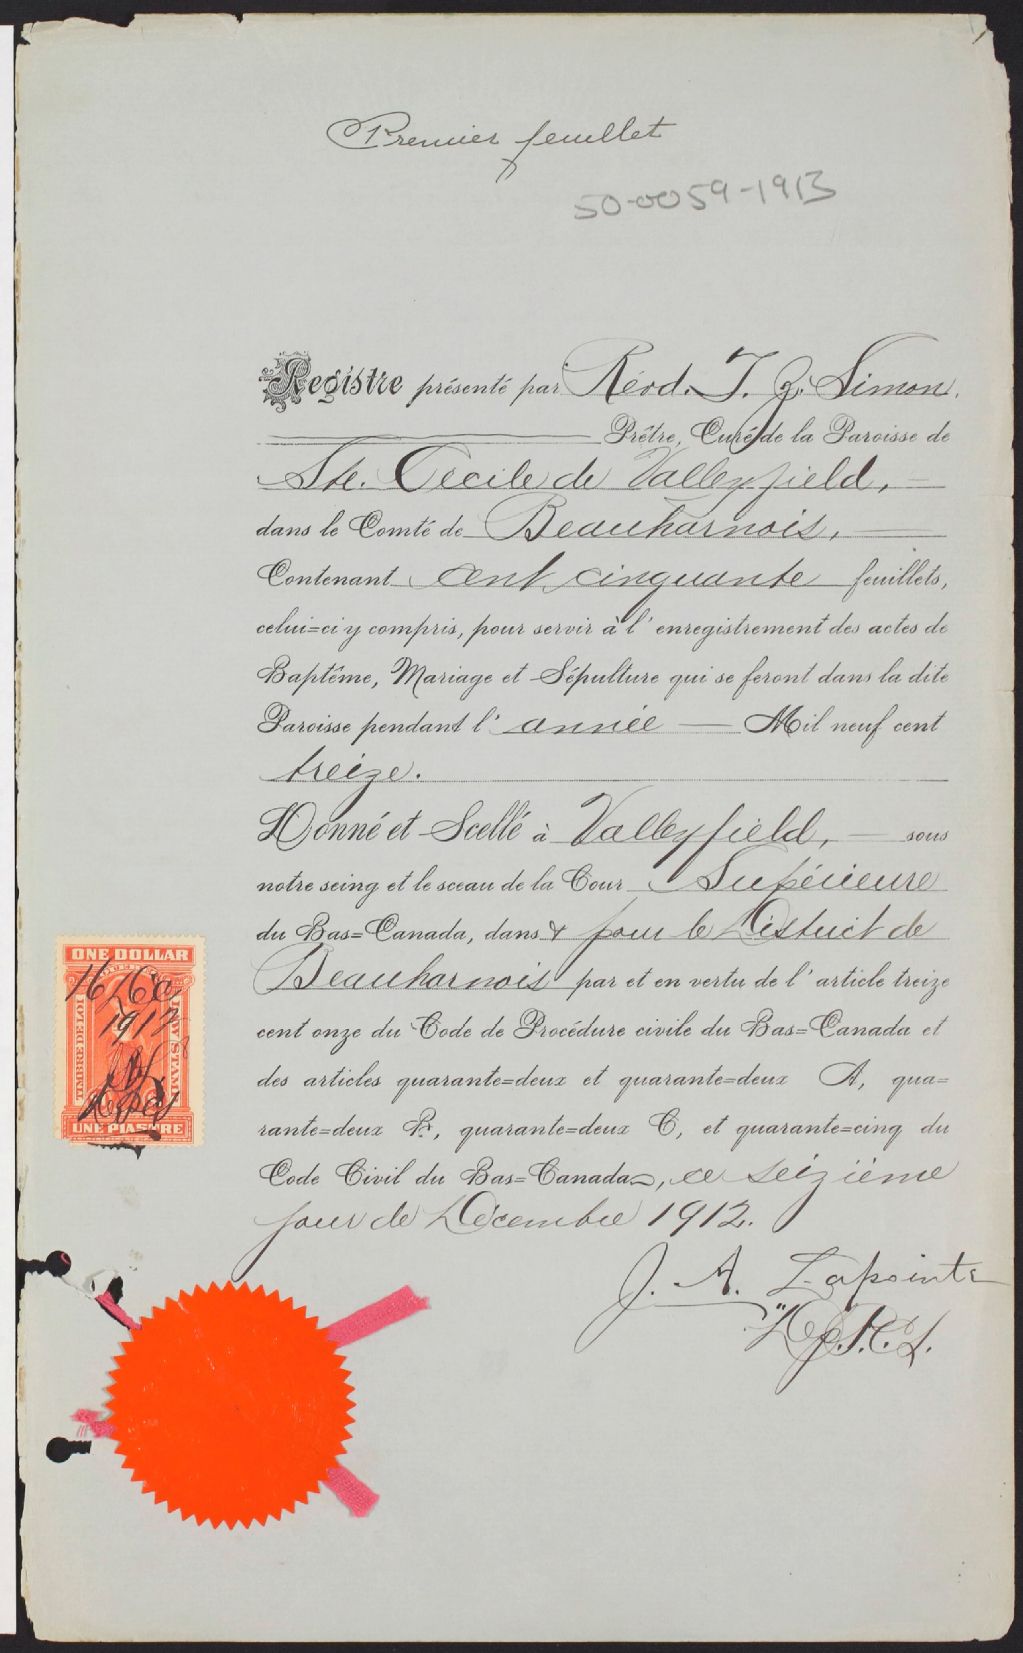 Premier feuillet
50-0059-1913
Registre présenté par Révd. J. Z. Simon,
Prêtre, Curé de la Paroisse de
Ste. Cécile de Valleyfield,
dans le Comté de Beauharnois,
Contenant cent cinquante feuillets,
celui=ci y compris, pour servir à l'enregistrement des actes de
Baptême, Mariage et Sépulture qui se feront dans la dite
Paroisse pendant l'année Mil neuf cent
treize.
Donné et Scellé à Valleyfield, sous
notre seing et le sceau de la Cour Supérieure
du Bas=Canada, dans & pour le District de
Beauharnois par et en vertu de l'article treize
cent onze du Code de Procédure civile du Bas=Canada et
des articles quarante=deux et quarante=deux A, qua=
rante=deux B, quarante=deux C, et quarante=cinq du
Code Civil du Bas=Canada, ce seizième
jour de Décembre 1912.
J. A. Lapointe
Dep. P. C. S.
ONE DOLLAR
TIMBRE DE LOI
LAW STAMP
16 Déc
1912
UNE PIASTRE